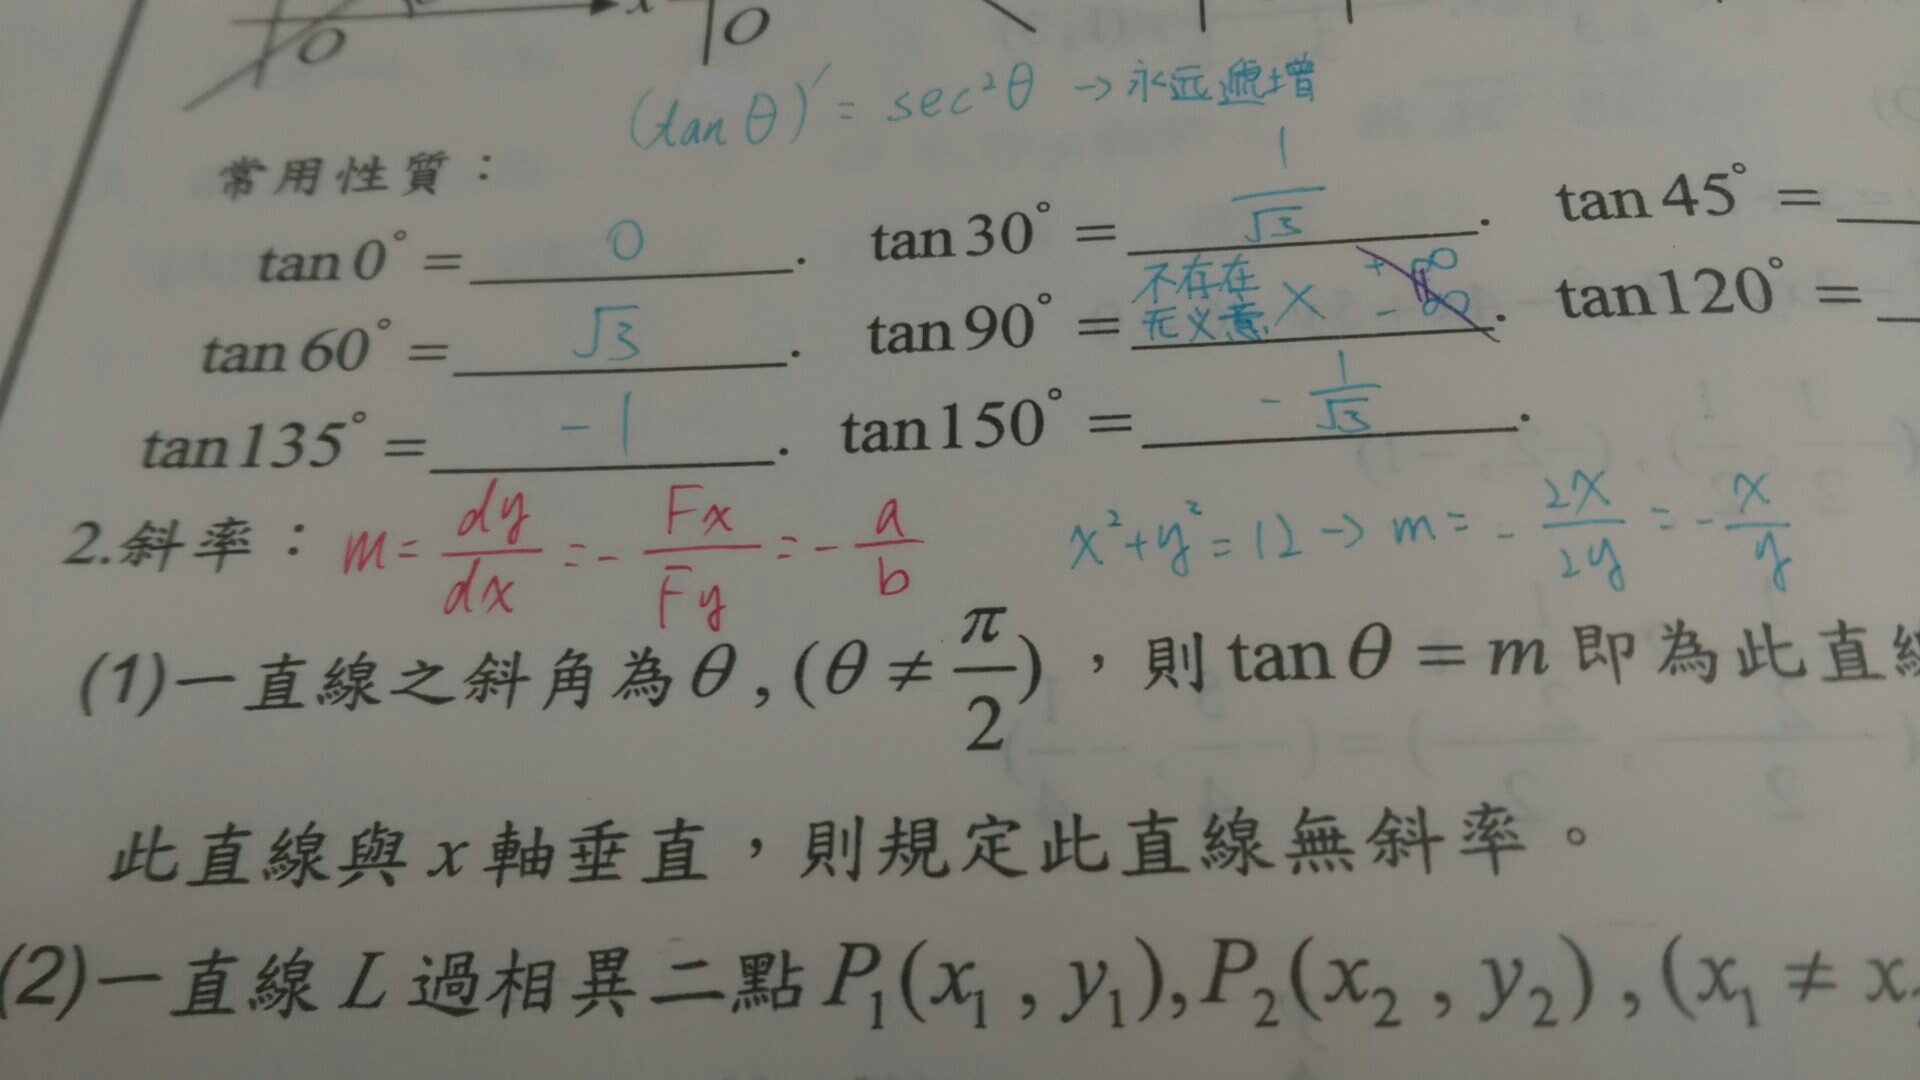 x O
O
(tan θ)' = sec²θ → 永远遞增
常用性質：
tan 0° = 0 . tan 30° = 1/√3 . tan 45° =
tan 60° = √3 . tan 90° = 不存在 无义意 × +∞ -∞ . tan 120° =
tan 135° = -1 . tan 150° = - 1/√3 .
2.斜率： m = dy/dx = - Fx/Fy = - a/b x² + y² = 12 → m = - 2x/2y = - x/y
(1)一直線之斜角為θ , (θ ≠ π/2) ，則 tan θ = m 即為此直線
此直線與 x 軸垂直，則規定此直線無斜率。
(2)一直線 L 過相異二點 P₁(x₁ , y₁), P₂(x₂ , y₂) , (x₁ ≠ x₂